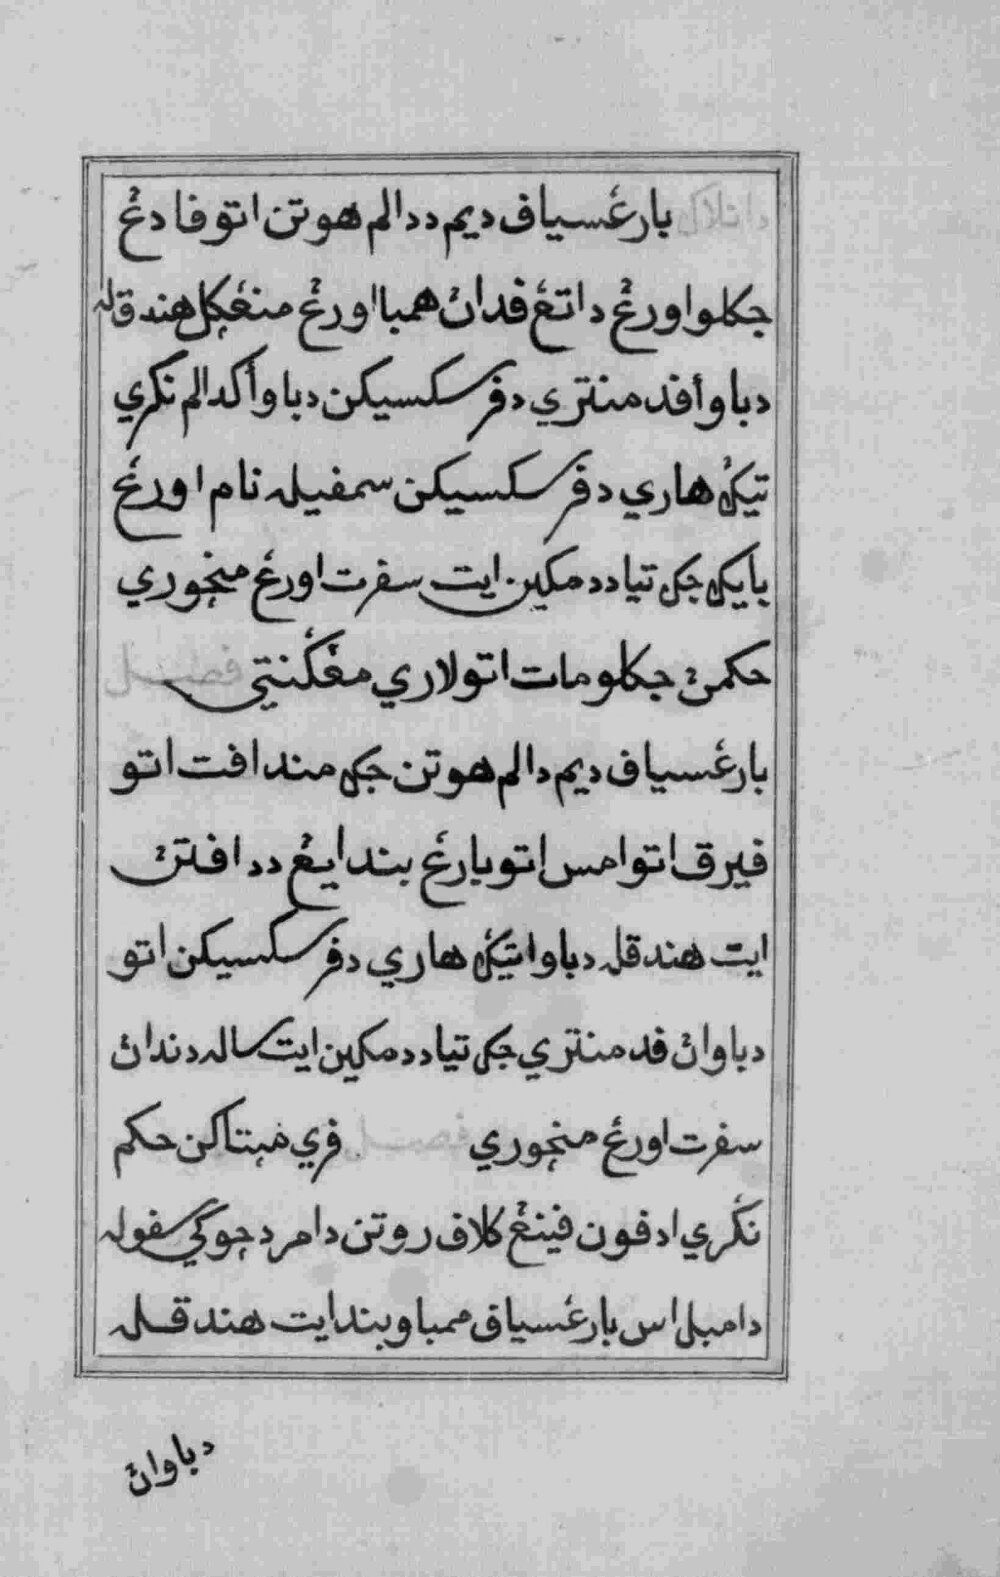 دانلاکي بارڠسياف ديم ددالم هوتن اتو فادڠ
جکلو اورڠ داتڠ فدان همبا اورڠ منڠݢل هندقله
دباوا فد منتري دفرسکسيکن دباوا کدالم نݢري
تيݢ هاري دفرسکسيکن سمفيله نام اورڠ
بايک جک تياد دمکين ايت سفرت اورڠ منچوري
حکمن جکلو مات اتو لاري مڠݢنتي فصل
بارڠسياف ديم دالم هوتن جک مندافت اتو
فيرق اتو امس اتو بارڠ بندايڠ ددافتن
ايت هندقله دباوا تيݢ هاري دفرسکسيکن اتو
دباوان فد منتري جک تياد دمکين ايت ساله دندان
سفرت اورڠ منچوري فصل فري مڽتاکن حکم
نݢري ادفون فينڠ کلاف روتن دامر دجوݢي سفوله
دامبل اس بارڠسياف ممباو بندايت هندقله
دباوان